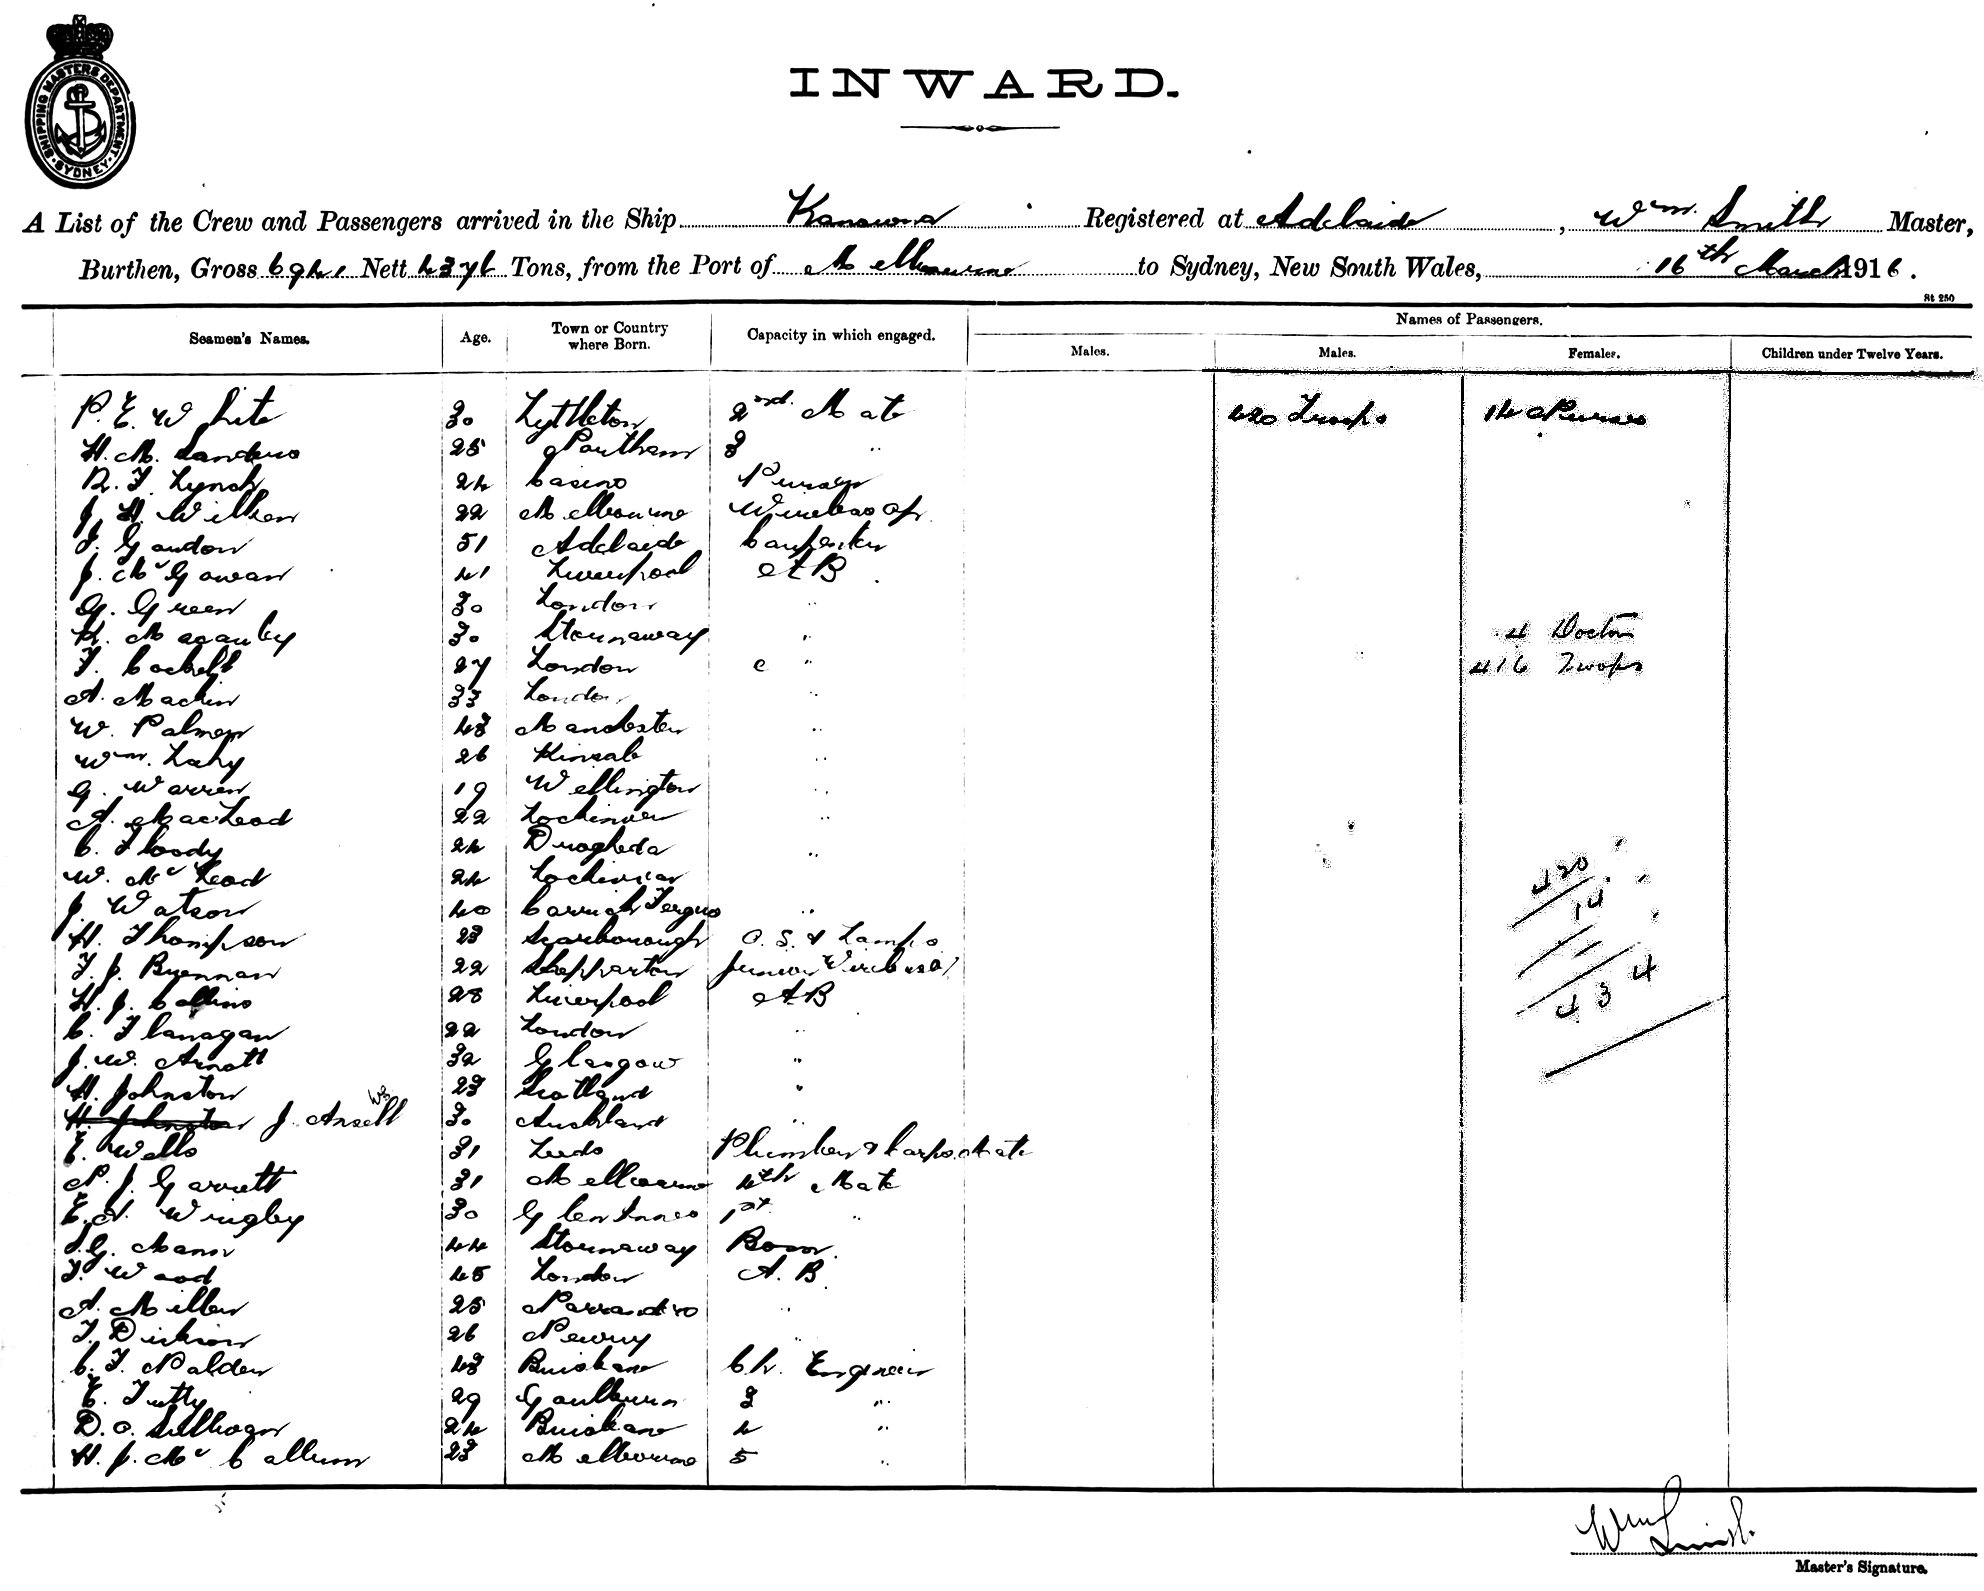 SHIPPING MASTERS DEPARTMENT. SYDNEY.
INWARD.
A List of the Crew and Passengers arrived in the Ship Kanowna Registered at Adelaide, Wm. Smith Master,
Burthen, Gross 6942 Nett 4376 Tons, from the Port of Melbourne to Sydney, New South Wales, 16th March 1916.
St 250
Seamen's Names. Age. Town or Country where Born. Capacity in which engaged. Names of Passengers.
Males. Males. Females. Children under Twelve Years.
P. E. White 30 Lyttleton 2nd. Mate 420 Troops 14 Nurses
H. M. Sanders 25 3 "
R. F. Lynch 24 Casino Purser
J. H. Wilken 22 Melbourne Wireless Op.
J. Gordon 51 Adelaide Carpenter
J. McGowan 41 Liverpool A B
G. Green 30 London "
K. Macauley 30 Stornaway " 4 Doctors
F. Cockett 27 London " 416 Troops
A. Machin 33 London "
W. Palmer 43 Manchester "
Wm. Lahy 26 Kinsale "
G. Warren 19 Wellington "
A. MacLeod 22 Lochinver "
C. Floody 24 Drogheda " 420
W. McLeod 24 Lochinver 14
J. Watson 40 Carrick Fergus "
H. Thompson 23 Scarborough O. S. & Lamps
T. J. Brennan 22 Shepparton Junior Wireless Op 434
H. J. Collins 28 Liverpool A B
C. Flanagan 22 London "
J. W. Arnott 32 Glasgow "
H. Johnston 23 Scotland "
H. Johnston J. Ansell 30 Auckland "
E. Wells 31 Leeds Plumber & Carps. Mate
N. J. Garrett 31 Melbourne 4th Mate
E. A. Wrigley 30 Glen Innes 1st "
G. Mann 44 Stornaway Bosn.
F. Wood 45 London A. B
A. Miller 25 Narrandra "
T. Dickson 26 Newry "
C. F. Nalder 43 Brisbane Ch. Engineer
E. Tutty 29 Goulburn 3 "
D. O. Sullivan 24 Brisbane 4 "
H. J. McCallum 23 Melbourne 5 "
Wm Smith
Master's Signature.